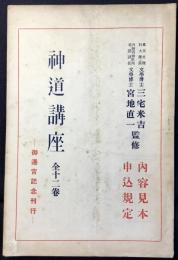 文學博士 三宅米吉
文學博士 宮地直一 監修
神道講座 全十二卷
—御遷宮記念刊行—
內容見本
申込規定